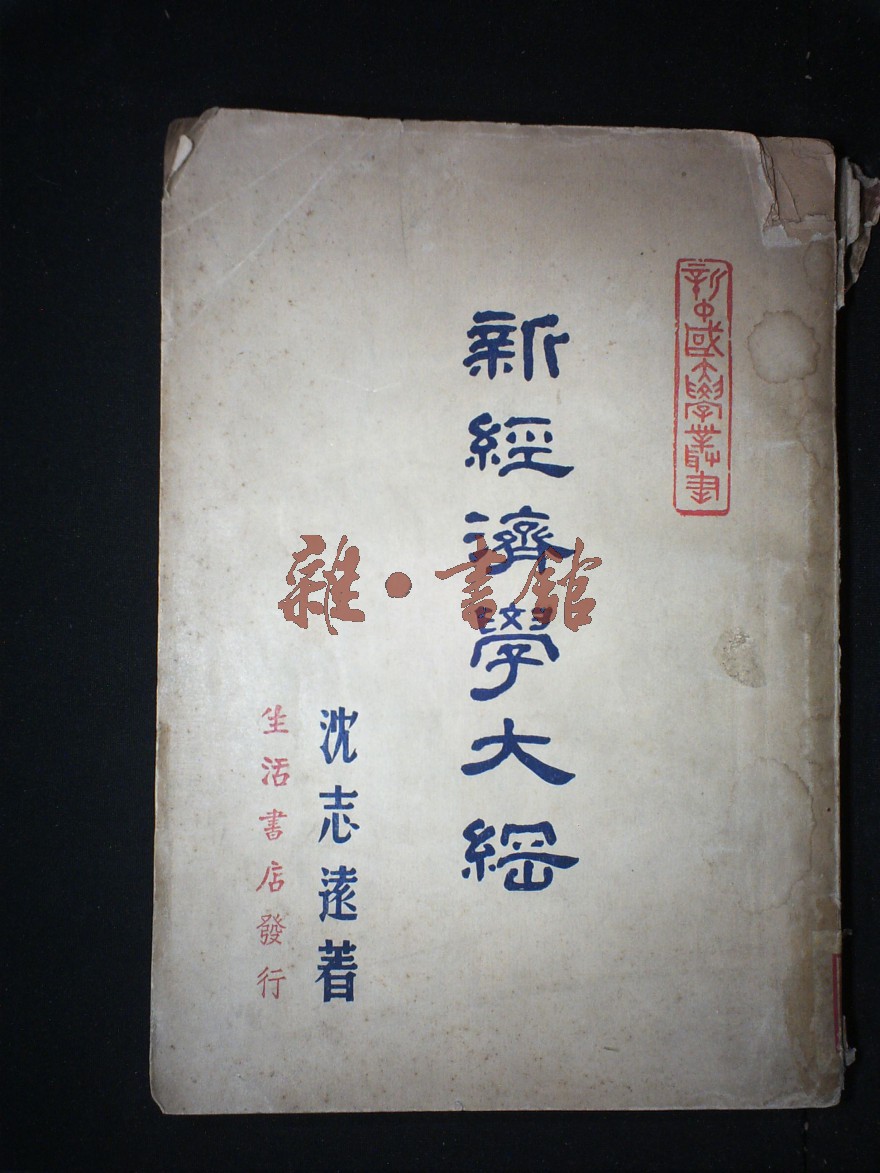 新中國大學叢書
新經濟學大綱
沈志遠着
生活書店發行
雜·書館